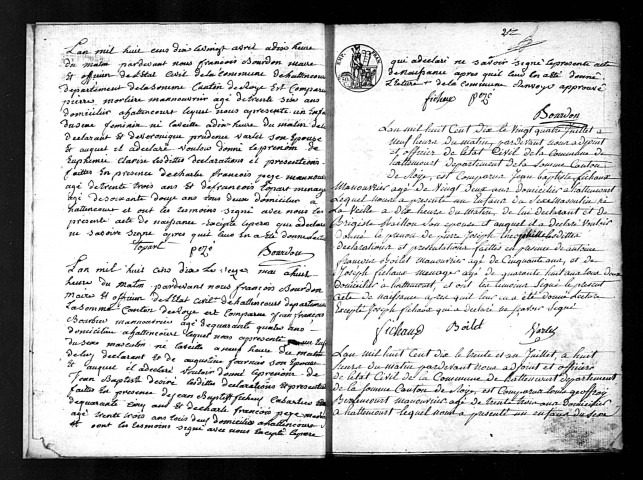 L'an mil huit cens dix le vingt avril a dix heure
du matin pardevant nous françois Bourdon maire
et officier de l'Etat Civil de la Commune de hattencourt
département de la Somme Canton de Roye Est Comparu
pierre mortier manouvrier agé de trente six ans
domicilier a hattencourt lequel nous apresenté un Enfant
du sexe feminin né laveille adix heure du matin de
declarant et de veronique prudence varlet son Epouse
et auquel il adeclaré vouloir donné leprenom de
Euphemie Clarice lesdittes declarations et presentation
faittes En presence de charle francois peze manouvrier
agé de trente trois ans et de francois topart menager
agé de soixante douze ans tous deux domicilier a
hattencourt et ont les temoins signé avec nous le
present acte de naissance Excepté lepere qui adeclaré
ne savoir signé apres que lecture En a été donné
topart pezé Bourdon
L'an mil huit cens dix le seize mai a huit
heure du matin pardevant nous francois Bourdon
maire et officier de l'Etat civil de hattencourt departement
de la Somme Canton de Roye est Comparu Jean francois
manouvrier agé de quarante quatre ans
domicilier a hattencourt lequel nous apresenté un Enfant
du sexe masculin né laveille a neuf heure du matin
de luy declarant et de augustine francois son Epouse
et auquel il adeclaré vouloir donné leprenom de
Jean Baptiste desiré lesdittes declarations et presentation
faittes En presence de jean Baptiste fichaux Cabaretier
de quarante Cinq ans et de charle francois peze
agé trente trois ans tous deux domicilier a hattencourt
et ont les temoins signé avec nous Excepté lepere
qui adeclaré ne savoir signé lepresente acte
de Naissance apres quil leur En a été donné
Lecture de la Commune approuvé
fichaux pezé
Bourdon
L'an mil huit Cent dix le Vingt quatre Juillet a
neuf heure du matin, pardevant nous adjoint
et officier de l'état Civil de la Commune de
hattencourt département de la Somme Canton
de Roye, est Comparu Jean baptiste fichaux
Manouvrier agé de Vingt deux ans Domicilier a hattencourt
Lequel nous a présenté un Enfant du Sexe Masculin né
La Veille a dix heure du Matin, de lui Declarant et de
Brigitte son épouse et auquel il a déclaré Vouloir
donné le prenom de pierre Joseph lesdittes
déclarations et présentations faittes en présence de antoine
françois Boilet Manouvrier agé de Cinquante ans, et de
Joseph fichaux menager agé de quarante huit ans tous deux
Domicilier a hattencourt, et ont les temoins Signé le présent
acte de naissance apres quil leur en a été donné lecture
Excepté Joseph fichaux qui a declaré ne savoir signer.
fichaux Boilet Varlet
L'an mil huit Cent dix le trente et un Juillet, a huit
heure du matin pardevant nous adjoint et officier
de l'état Civil de la Commune de hattencourt département
de la Somme Canton de Roye, est Comparu Louis geoffroy
Manouvrier agé de trente trois ans domicilier
a hattencourt lequel nous a présenté un enfant du sexe